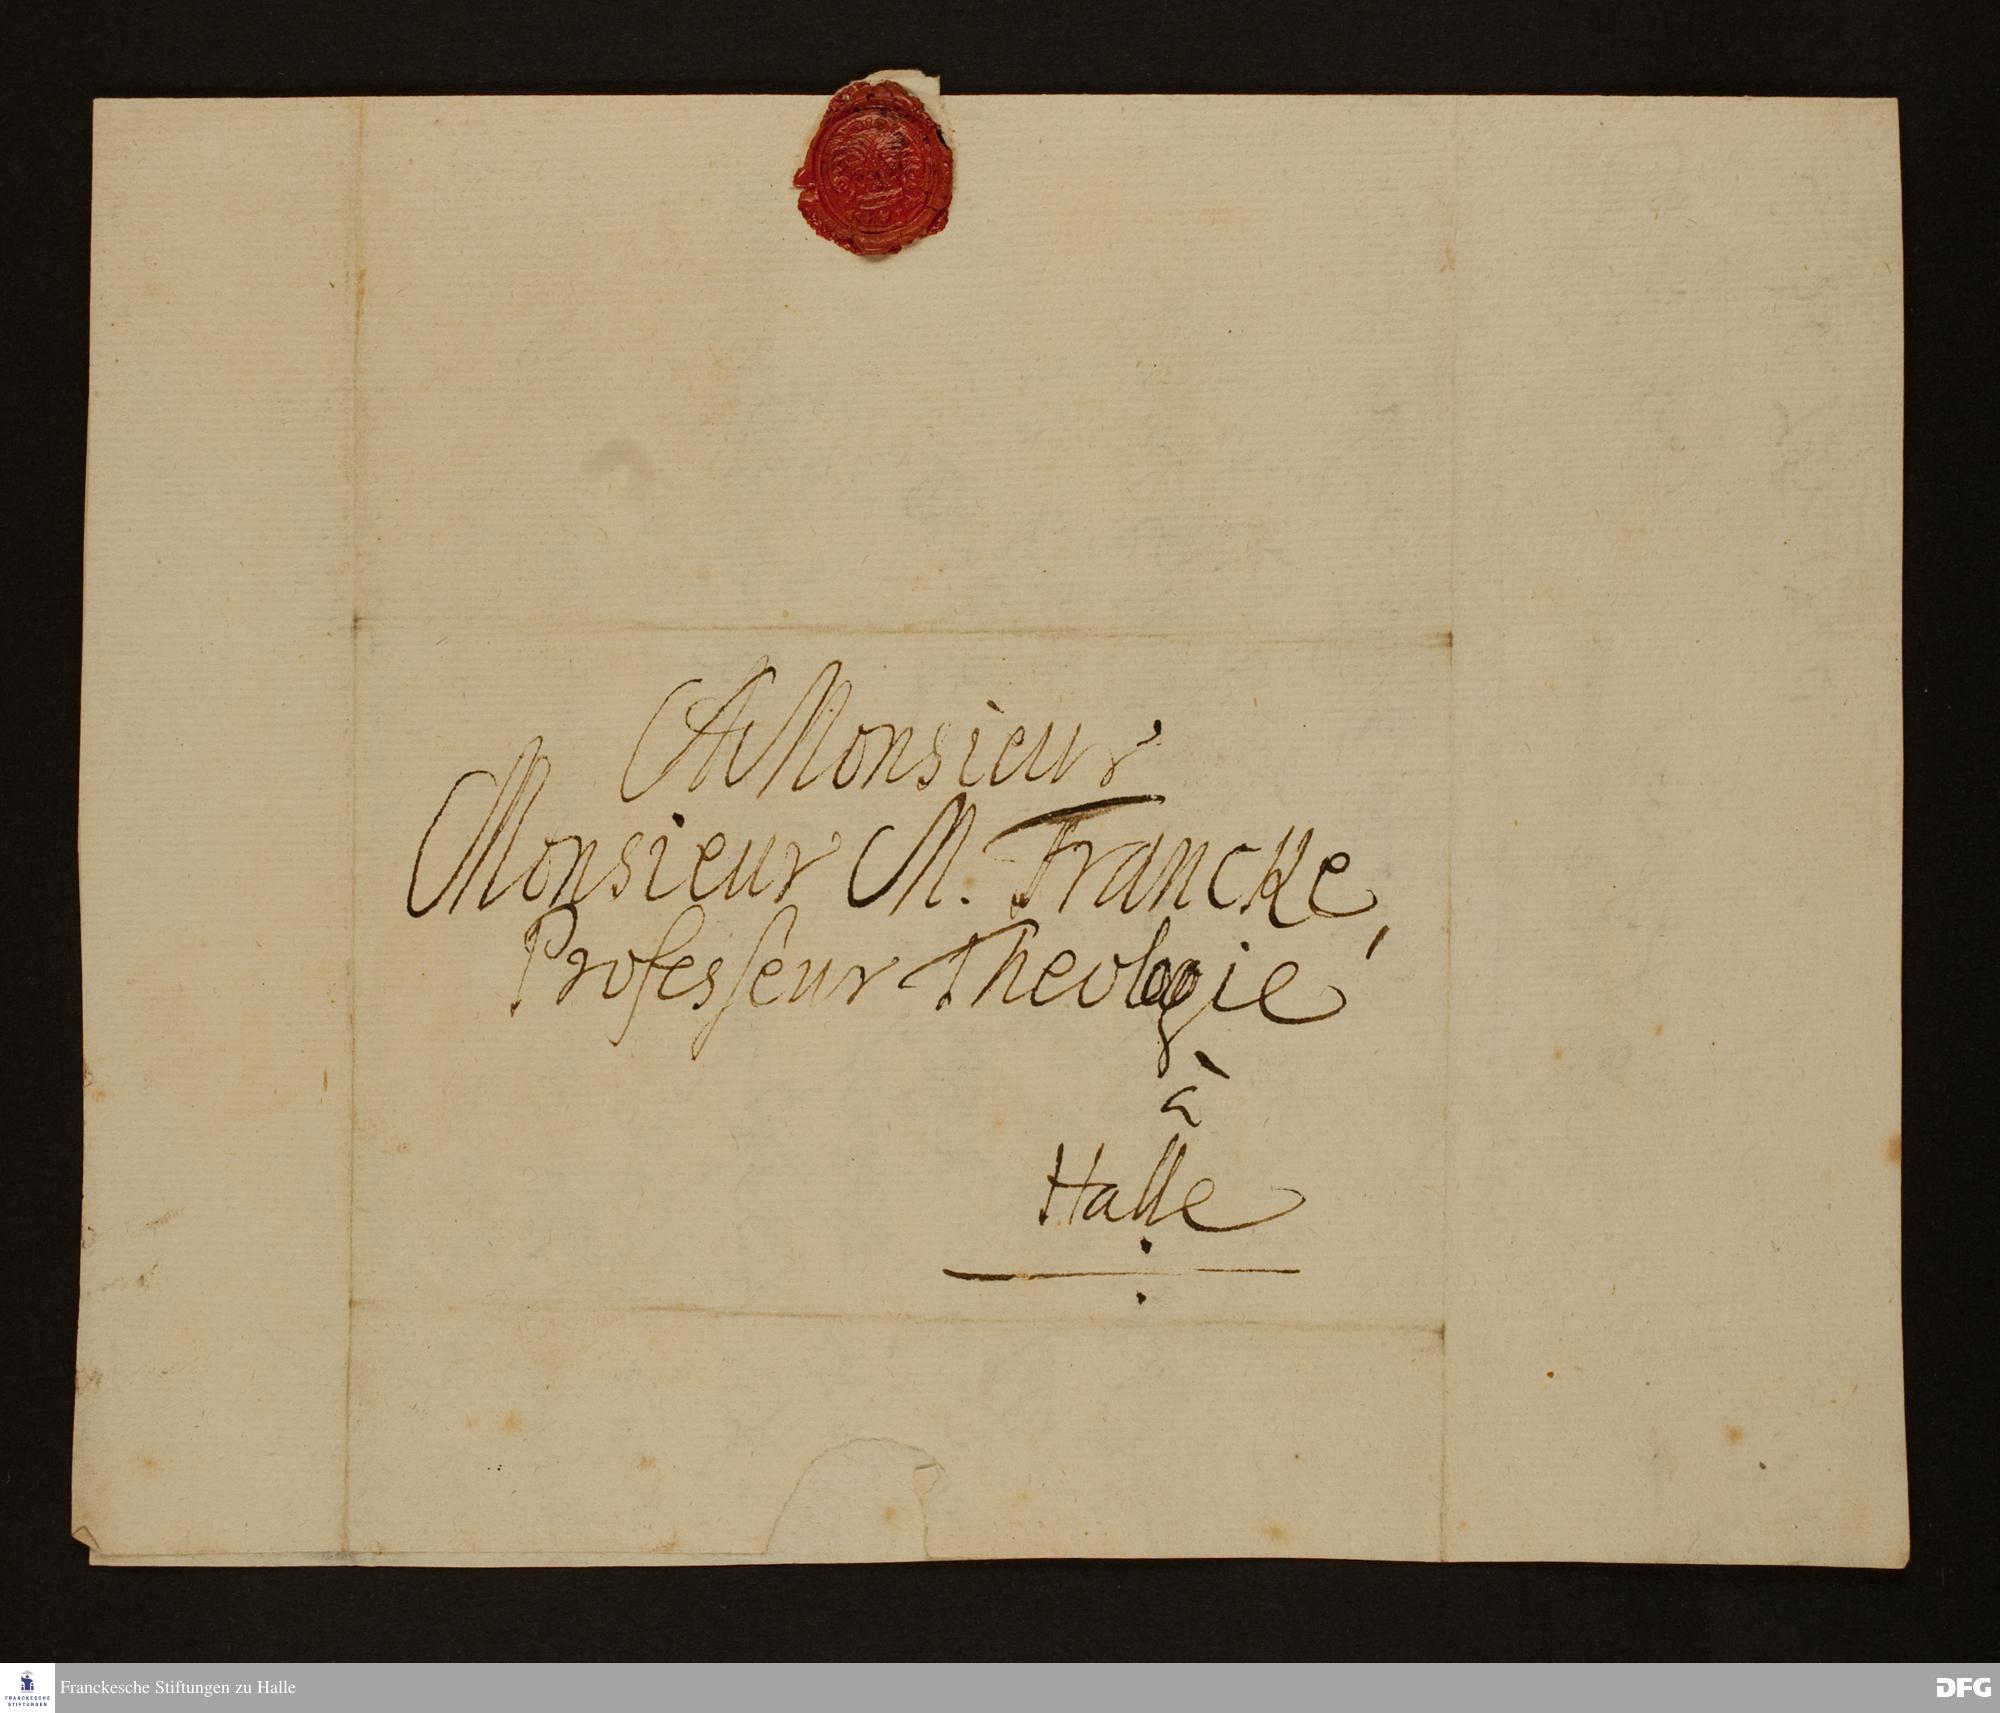 A Monsieur
Monsieur M. Francke,
Professeur Theologie
à
Halle
Franckesche Stiftungen zu Halle
FRANCKESCHE
STIFTUNGEN
DFG